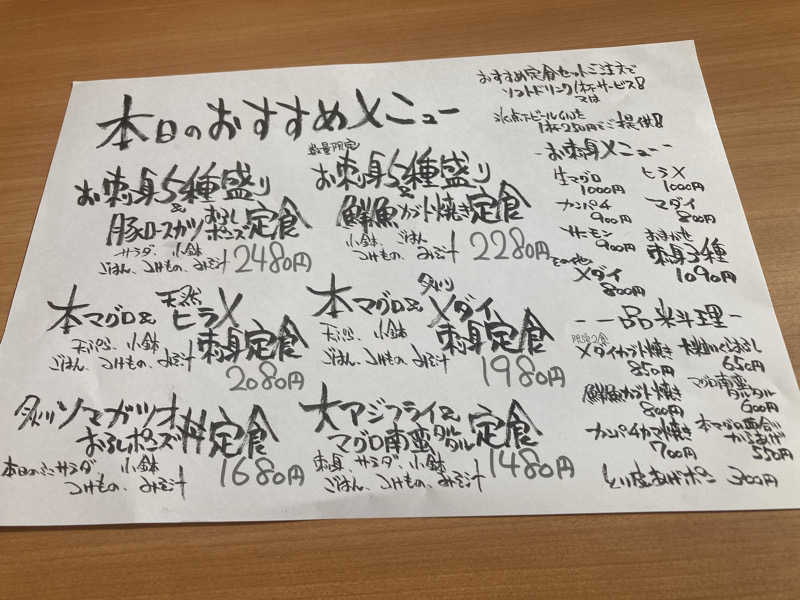 本日のおすすめメニュー
おすすめ定食セットご注文で
ソフトドリンク1杯サービス!!
又は
1杯250円でご提供!!
お刺身5種盛り
&
豚ロースカツおろしポンズ定食
サラダ、小鉢
ごはん、つけもの、みそ汁
2480円
数量限定
お刺身5種盛り
&
鮮魚カブト焼き定食
小鉢、ごはん
つけもの、みそ汁
2280円
本マグロ&天然ヒラメ
刺身定食
天ぷら、小鉢
ごはん、つけもの、みそ汁
2080円
本マグロ&炙りメダイ
刺身定食
天ぷら、小鉢
ごはん、つけもの、みそ汁
1980円
炙りソマガツオ
おろしポンズ丼定食
本日のミニサラダ、小鉢
つけもの、みそ汁
1680円
大アジフライ&
マグロ南蛮タルタル定食
刺身、サラダ、小鉢
ごはん、つけもの、みそ汁
1480円
-お刺身メニュー-
生マグロ
1000円
ヒラメ
1000円
カンパチ
900円
マダイ
800円
サーモン
900円
おまかせ
刺身3種
1090円
その他
メダイ
800円
-一品料理-
限定2食
メダイカブト焼き
850円
650円
鮮魚カブト焼き
800円
マグロ南蛮
タルタル
600円
カンパチカマ焼き
700円
本マグロ血合い
からあげ
550円
とり皮あげポン 300円